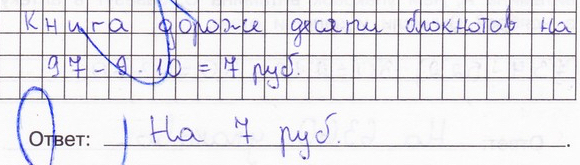 Книга дороже десяти блокнотов на
97 - 9 · 10 = 7 руб.
Ответ: На 7 руб.